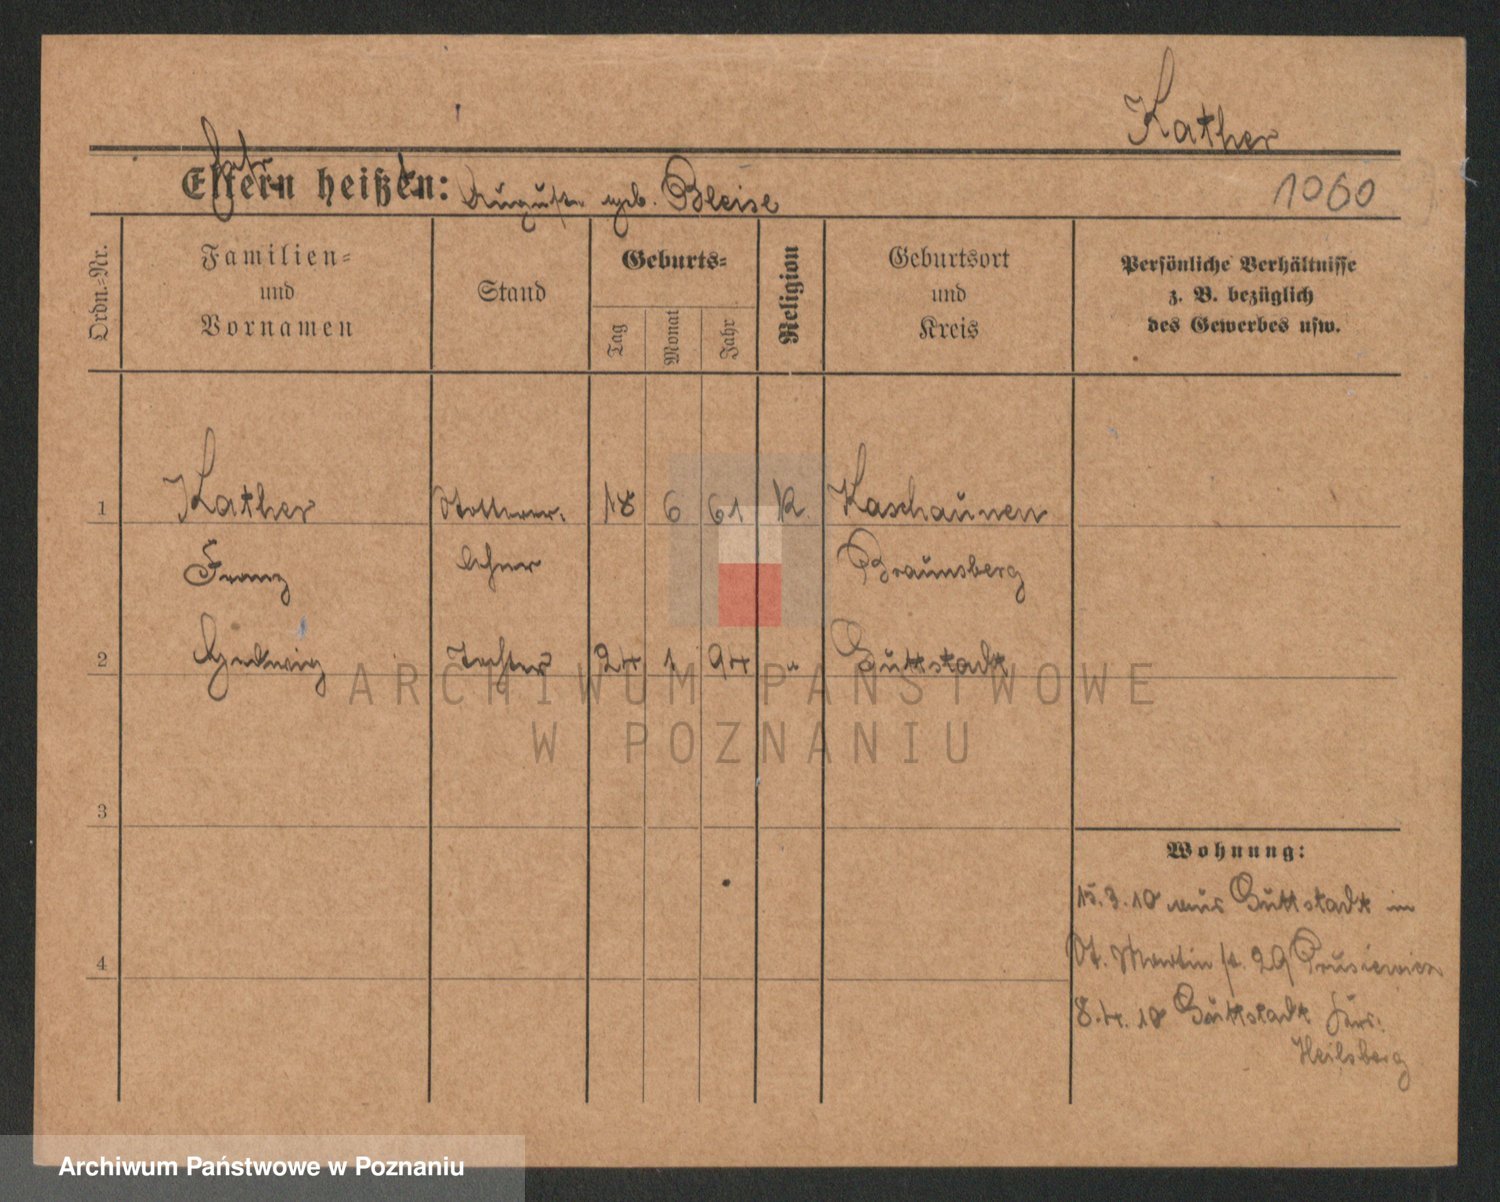 Kather
Eltern heißen: Auguste geb. Bleise
1060
Ordn.-Nr.
Familien-
und
Vornamen
Stand
Geburts-
Tag
Monat
Jahr
Religion
Geburtsort
und
Kreis
Persönliche Verhältnisse
z. B. bezüglich
des Gewerbes usw.
1 Kather 18 6 61 K. Kaschaunen
Franz Braunsberg
2 Hedwig Tochter 24 1 94 " Guttstadt
3
4
Wohnung:
15.3.10 aus Guttstadt in
St. Martin st. 29 Prusiewicz
8.4.10 Guttstadt
Heilsberg
ARCHIWUM PAŃSTWOWE
W POZNANIU
Archiwum Państwowe w Poznaniu